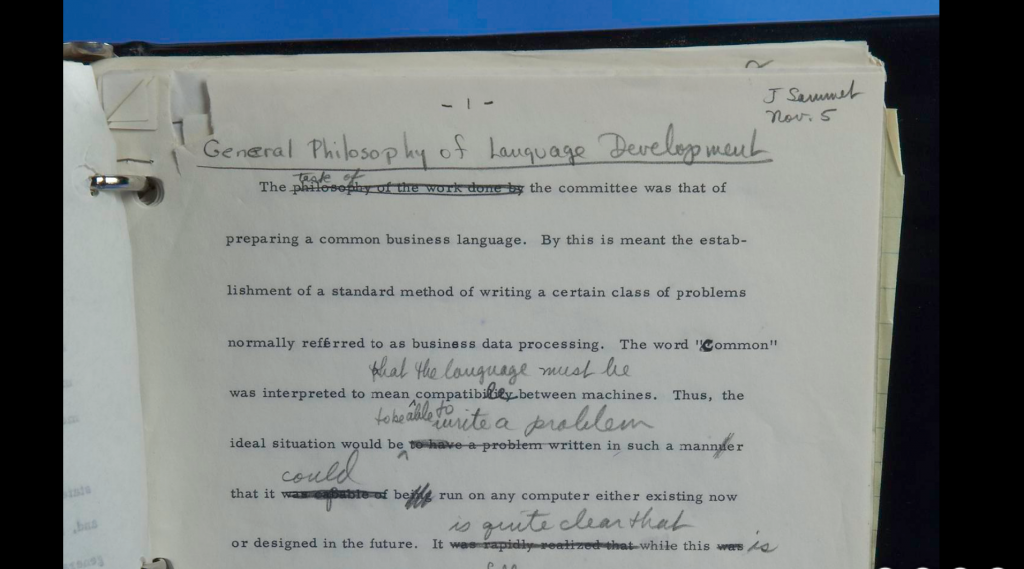 J Sammet
Nov. 5
- 1 -
General Philosophy of Language Development
task of
The philosophy of the work done by the committee was that of
preparing a common business language. By this is meant the estab-
lishment of a standard method of writing a certain class of problems
normally referred to as business data processing. The word "Common"
that the language must be
was interpreted to mean compatible between machines. Thus, the
to be able to write a problem
ideal situation would be to have a problem written in such a manner
could
that it was capable of be run on any computer either existing now
is quite clear that
or designed in the future. It was rapidly realized that while this was is